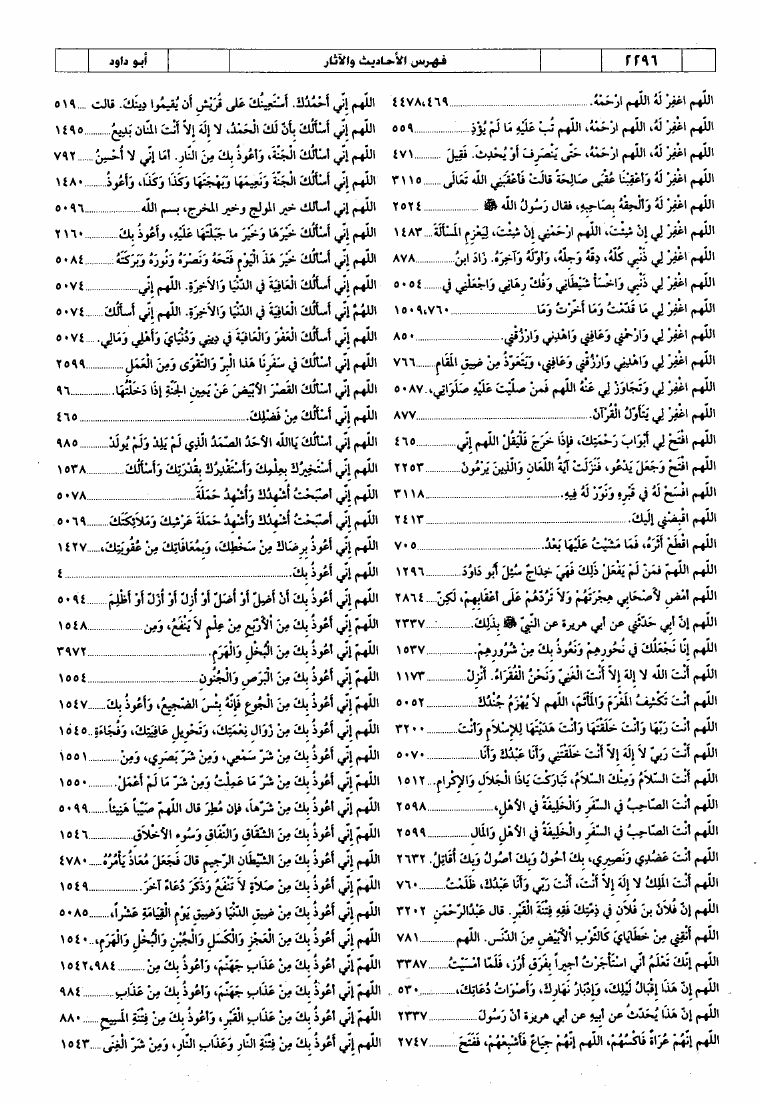 ٢٢٩٦
فهرس الأحاديث والآثار
أبو داود
اللّهم اغْفِرْ لَهُ اللّهم ارْحَمْهُ. ٤٤٧٨،٤٦٩
اللّهم اغْفِرْ لَهُ، اللّهم ارْحَمْهُ، اللّهم تُبْ عَلَيْهِ مَا لَمْ يُؤْذِ ٥٥٩
اللّهم اغْفِرْ لَهُ، اللّهم ارْحَمْهُ، حَتَّى يَنْصَرِفَ أَوْ يُحْدِثَ. فَقِيلَ ٤٧١
اللّهم اغْفِرْ لَهُ وَأَعْقِبْنَا عُقْبَى صَالِحَةً قالَتْ فَأَعْقَبَنِي الله تَعَالَى ٣١١٥
اللّهم اغْفِرْ لَهُ وَأَلْحِقْهُ بِصَاحِبِهِ، فقال رَسُولُ الله ﷺ ٢٥٢٤
اللّهم اغْفِرْ لِي إِنْ شِئْتَ، اللّهم ارْحَمْنِي إِنْ شِئْتَ، لِيَعْزِمِ المَسْأَلَةَ ١٤٨٣
اللّهم اغْفِرْ لِي ذَنْبِي كُلَّهُ، دِقَّهُ وَجِلَّهُ، وَأَوَّلَهُ وَآخِرَهُ. زَادَ ابنُ ٨٧٨
اللّهم اغْفِرْ لِي ذَنْبِي وَاخْسَأْ شَيْطَانِي وَفُكَّ رِهَانِي وَاجْعَلْنِي في ٥٠٥٤
اللّهم اغْفِرْ لِي مَا قَدَّمْتُ وَمَا أَخَّرْتُ وَمَا ١٥٠٩،٧٦٠
اللّهم اغْفِرْ لِي وَارْحَمْنِي وَعَافِنِي وَاهْدِنِي وَارْزُقْنِي. ٨٥٠
اللّهم اغْفِرْ لِي وَاهْدِنِي وَارْزُقْنِي وَعَافِنِي، وَيَتَعَوَّذُ مِنْ ضِيقِ المَقَامِ ٧٦٦
اللّهم اغْفِرْ لِي وَتَجَاوَزْ لِي عَنْهُ اللّهم فَمَنْ صَلَّيْتَ عَلَيْهِ صَلَوَاتِي، ٥٠٨٧
اللّهم اغْفِرْ لِي يَتَأَوَّلُ القُرْآنَ. ٨٧٧
اللّهم افْتَحْ لِي أَبْوَابَ رَحْمَتِكَ، فَإِذَا خَرَجَ فَلْيَقُلْ اللّهم إِنِّي ٤٦٥
اللّهم افْتَحْ وَجَعَلَ يَدْعُو، فَنَزَلَتْ آيَةُ اللِّعَانِ وَالَّذِينَ يَرْمُونَ ٢٢٥٣
اللّهم افْسَحْ لَهُ في قَبْرِهِ وَنَوِّرْ لَهُ فِيهِ. ٣١١٨
اللّهم اقْبِضْنِي إِلَيكَ. ٢٤١٣
اللّهم اقْطَعْ أَثَرَهُ، فَمَا مَشَيْتُ عَلَيْهَا بَعْدُ. ٧٠٥
اللّهم اللّهمّ فَمَنْ لَمْ يَفْعَلْ ذَلِكَ فَهِيَ خِدَاجٌ سُئِلَ أَبُو دَاوُدَ ١٢٩٦
اللّهم أَمْضِ لأَصْحَابِي هِجْرَتَهُمْ وَلاَ تَرُدَّهُمْ عَلَى أَعْقَابِهِمْ، لَكِنْ ٢٨٦٤
اللّهم إِنَّ أَبِي حَدَّثَنِي عن أبي هريرة عن النَّبيِّ ﷺ بِذَلِكَ. ٢٣٣٧
اللّهم إِنَّا نَجْعَلُكَ في نُحُورِهِمْ وَنَعُوذُ بِكَ مِنْ شُرُورِهِمْ. ١٥٣٧
اللّهم أَنْتَ الله لا إِلَهَ إِلاَّ أَنْتَ الْغَنِيُّ وَنَحْنُ الْفُقَرَاءُ. أَنْزِلْ ١١٧٣
اللّهم أَنْتَ تَكْشِفُ المَغْرَمَ وَالمَأْثَمَ، اللّهم لاَ يُهْزَمُ جُنْدُكَ ٥٠٥٢
اللّهم أَنْتَ رَبُّهَا وَأَنْتَ خَلَقْتَهَا وَأَنْتَ هَدَيْتَهَا لِلإِسْلاَمِ وَأَنْتَ ٣٢٠٠
اللّهم أَنْتَ رَبِّي لاَ إِلَهَ إِلاَّ أَنْتَ خَلَقْتَنِي وَأَنَا عَبْدُكَ وَأَنَا ٥٠٧٠
اللّهم أَنْتَ السَّلاَمُ وَمِنْكَ السَّلاَمُ، تَبَارَكْتَ يَاذَا الْجَلاَلِ وَالإِكْرامِ. ١٥١٢
اللّهم أنْتَ الصّاحِبُ في السَّفَرِ وَالْخَلِيفَةُ في الأهْلِ، ٢٥٩٨
اللّهم أنْتَ الصّاحِبُ في السَّفَرِ وَالْخَلِيفَةُ في الأهْلِ وَالمَالِ ٢٥٩٩
اللّهم أنتَ عَضُدِي وَنَصِيرِي، بِكَ أَحُولُ وَبِكَ أَصُولُ وَبِكَ أُقَاتِلُ. ٢٦٣٢
اللّهم أَنْتَ المَلِكُ لا إِلَهَ إِلاَّ أَنْتَ، أَنْتَ رَبِّي وَأَنَا عَبْدُكَ، ظَلَمْتُ ٧٦٠
اللّهم إِنَّ فُلاَنَ بنَ فُلاَنٍ في ذِمَّتِكَ فَقِهِ فِتْنَةَ الْقَبْرِ. قال عَبْدُالرَّحْمَنِ ٣٢٠٢
اللّهم أَنْقِنِي مِنْ خَطَايَايَ كَالثَّوْبِ الأَبْيَضِ مِنَ الدَّنَسِ. اللّهم ٧٨١
اللّهم إِنَّكَ تَعْلَمُ أَنِّي اسْتَأْجَرْتُ أَجِيراً بِفَرَقِ أَرُزٍّ، فَلَمَّا أَمْسَيْتُ ٣٣٨٧
اللّهم إِنَّ هَذَا إِقْبَالُ لَيْلِكَ، وَإِدْبَارُ نَهَارِكَ، وَأَصْوَاتُ دُعَاتِكَ، ٥٣٠
اللّهم إِنَّ هَذَا يُحَدِّثُ عن أبِيهِ عن أبي هريرة أنَّ رَسُولَ ٢٣٣٧
اللّهم إِنَّهُمْ عُرَاةٌ فَاكْسُهُمْ، اللّهم إِنَّهُمْ جِيَاعٌ فَأَشْبِعْهُمْ، فَفَتَحَ ٢٧٤٧
اللّهم إِنِّي أَحْمَدُكَ. أَسْتَعِينُكَ عَلَى قُرَيْشٍ أَن يُقِيمُوا دِينَكَ. قالت ٥١٩
اللّهم إِنِّي أَسْأَلُكَ بِأَنَّ لَكَ الْحَمْدُ، لا إِلَهَ إِلاَّ أَنْتَ المَنَّان بَدِيعُ ١٤٩٥
اللّهم إِنِّي أَسْأَلُكَ الْجَنَّةَ، وَأَعُوذُ بِكَ مِنَ النَّارِ. أمَا إِنِّي لا أُحْسِنُ ٧٩٢
اللّهم إِنِّي أَسْأَلُكَ الْجَنَّةَ وَنَعِيمَهَا وَبَهْجَتَهَا وَكَذَا وَكَذَا، وَأَعُوذُ ١٤٨٠
اللّهم إِنِّي أسألك خير المولج وخير المخرج، بسم الله ٥٠٩٦
اللّهم إِنِّي أَسْأَلُكَ خَيْرَهَا وَخَيْرَ ما جَبَلْتَهَا عَلَيْهِ، وَأَعُوذُ بِكَ ٢١٦٠
اللّهم إِنِّي أَسْأَلُكَ خَيْرَ هَذَا الْيَوْمِ فَتْحَهُ وَنَصْرَهُ وَنُورَهُ وَبَرَكَتَهُ ٥٠٨٤
اللّهم إِنِّي أَسْأَلُكَ الْعَافِيَةَ في الدُّنْيَا وَالآخِرَةِ. اللّهم إِنِّي ٥٠٧٤
اللهُمَّ إِنِّي أَسْأَلُكَ الْعَافِيَةَ في الدُّنْيَا وَالآخِرَةِ. اللّهم إِنِّي أَسأَلُكَ ٥٠٧٤
اللّهم إِنِّي أَسْأَلُكَ الْعَفْوَ وَالْعَافِيَةَ في دِينِي وَدُنْيَايَ وَأَهْلِي وَمَالِي. ٥٠٧٤
اللّهم إِنِّي أَسْأَلُكَ في سَفَرِنَا هَذَا الْبِرَّ وَالتَّقْوَى وَمِنَ الْعَمَلِ ٢٥٩٩
اللّهم إِنِّي أَسْأَلُكَ الْقَصْرَ الأَبْيَضَ عَنْ يَمِينِ الْجَنَّةِ إِذَا دَخَلْتُهَا. ٩٦
اللّهم إِنِّي أَسْأَلُكَ مِنْ فَضْلِكَ. ٤٦٥
اللّهم إِنِّي أَسْأَلُكَ يَاالله الأَحَدُ الصَّمَدُ الَّذِي لَمْ يَلِدْ وَلَمْ يُولَدْ ٩٨٥
اللّهم إِنِّي أَسْتَخِيرُكَ بِعِلْمِكَ وَأَسْتَقْدِرُكَ بِقُدْرَتِكَ وَأَسْأَلُكَ ١٥٣٨
اللّهم إِنِّي أَصْبَحْتُ أُشْهِدُكَ وَأُشْهِدُ حَمَلَةَ ٥٠٧٨
اللّهم إِنِّي أَصْبَحْتُ أُشْهِدُكَ وَأُشْهِدُ حَمَلَةَ عَرْشِكَ وَمَلاَئِكَتَكَ ٥٠٦٩
اللّهم إِنِّي أَعُوذُ بِرِضَاكَ مِنْ سَخَطِكَ، وَبِمُعَافَاتِكَ مِنْ عُقُوبَتِكَ، ١٤٢٧
اللّهم إِنِّي أَعُوذُ بِكَ. ٤
اللّهم إِنِّي أَعُوذُ بِكَ أَنْ أَضِلَّ أَوْ أُضَلَّ أَوْ أَزِلَّ أَوْ أُزَلَّ أَوْ أَظْلِمَ ٥٠٩٤
اللّهمّ إِنِّي أَعُوذُ بِكَ مِنَ الأَرْبَعِ مِنْ عِلْمٍ لاَ يَنْفَعُ، وَمِن ١٥٤٨
اللّهمّ إِنِّي أَعُوذُ بِكَ مِنَ الْبُخْلِ وَالْهَرَمِ. ٣٩٧٢
اللّهمّ إِنِّي أَعُوذُ بِكَ مِنَ الْبَرَصِ وَالْجُنُونِ ١٥٥٤
اللّهمّ إِنِّي أَعُوذُ بِكَ مِنَ الْجُوعِ فَإِنَّهُ بِئْسَ الضَّجِيعُ، وَأَعُوذُ بِكَ ١٥٤٧
اللّهمّ إِنِّي أَعُوذُ بِكَ مِنْ زَوَالِ نِعْمَتِكَ، وَتَحْوِيلِ عَافِيَتِكَ، وَفُجَاءَةِ ١٥٤٥
اللّهمّ إِنِّي أَعُوذُ بِكَ مِنْ شَرِّ سَمْعِي، وَمِنْ شَرِّ بَصَرِي، وَمِنْ ١٥٥١
اللّهمّ إِنِّي أَعُوذُ بِكَ مِنْ شَرِّ مَا عَمِلْتُ وَمِنْ شَرِّ مَا لَمْ أَعْمَلْ. ١٥٥٠
اللّهم إِنِّي أَعُوذُ بِكَ مِنْ شَرِّهَا، فَإِن مُطِرَ قال اللّهمّ صَيِّباً هَنِيئاً. ٥٠٩٩
اللّهم إِنِّي أَعُوذُ بِكَ مِنَ الشِّقَاقِ وَالنِّفَاقِ وَسُوءِ الأَخْلاَقِ ١٥٤٦
اللّهمّ إِنِّي أَعُوذُ بِكَ مِنَ الشَّيْطَانِ الرَّجِيمِ قالَ فَجَعَلَ مُعَاذٌ يَأْمُرُهُ ٤٧٨٠
اللّهمّ إِنِّي أَعُوذُ بِكَ مِنْ صَلاَةٍ لاَ تَنْفَعُ وَذَكَرَ دُعَاءً آخَرَ. ١٥٤٩
اللّهمّ إِنِّي أَعُوذُ بِكَ مِنْ ضِيقِ الدُّنْيَا وَضِيقِ يَوْمِ الْقِيَامَةِ عَشْراً، ٥٠٨٥
اللّهمّ إِنِّي أَعُوذُ بِكَ مِنَ الْعَجْزِ وَالْكَسَلِ وَالْجُبْنِ وَالْبُخْلِ وَالْهَرَمِ، ١٥٤٠
اللّهمّ إِنِّي أَعُوذُ بِكَ مِنْ عَذَابِ جَهَنَّمَ، وَأَعُوذُ بِكَ مِنْ ١٥٤٢،٩٨٤
اللّهمّ إِنِّي أَعُوذُ بِكَ مِنْ عَذَابِ جَهَنَّمَ، وَأَعُوذُ بِكَ مِنْ عَذَابِ ٩٨٤
اللّهمّ إِنِّي أَعُوذُ بِكَ مِنْ عَذَابِ الْقَبْرِ، وَأَعُوذُ بِكَ مِنْ فِتْنَةِ المَسِيحِ ٨٨٠
اللّهم إِنِّي أَعُوذُ بِكَ مِنْ فِتْنَةِ النَّارِ وَعَذَابِ النَّارِ، وَمِنْ شَرِّ الْغِنَى ١٥٤٣